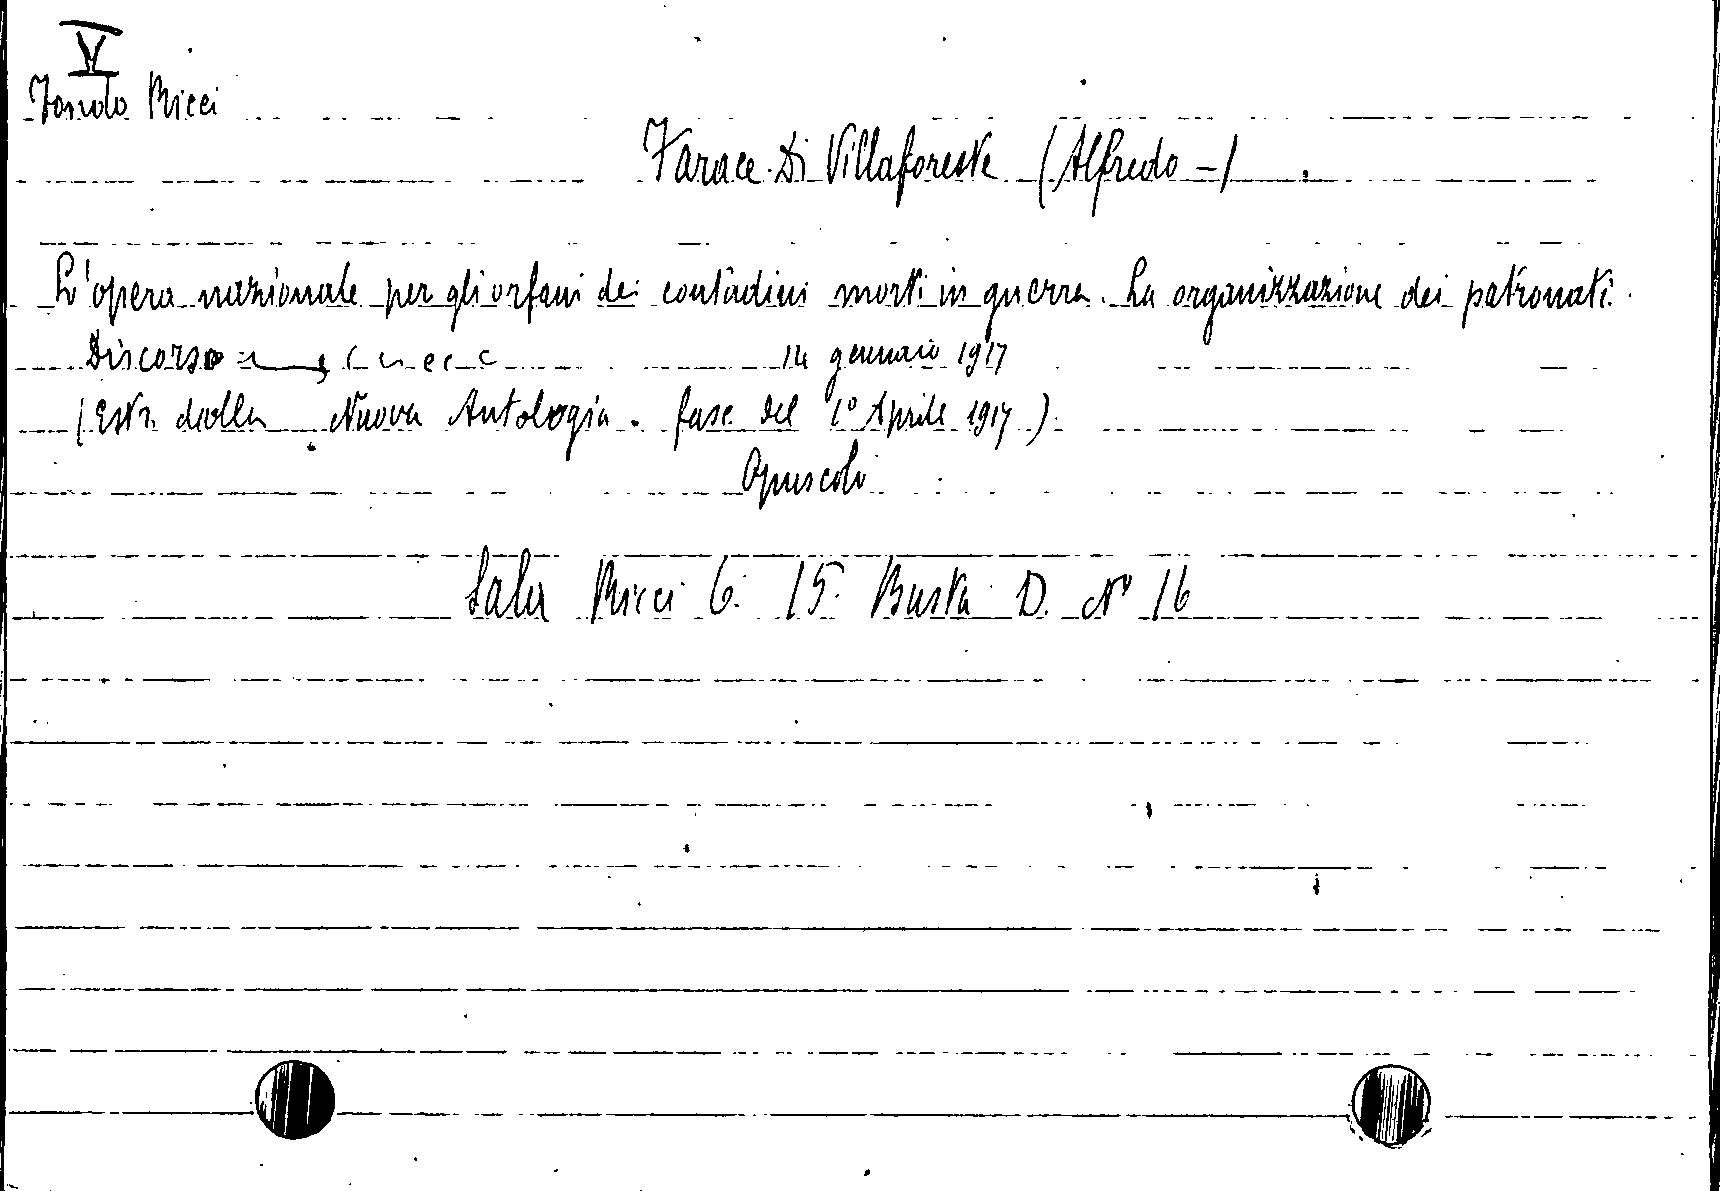 V
Ricci
Farace Di Villaforesta (Alfredo -)
L'opera nazionale per gli orfani dei contadini morti in guerra. La organizzazione dei patronati.
Discorso 14 gennaio 1917
(Estr. dalla Nuova Antologia. fasc. del 1° Aprile 1917).
Opuscolo
Sala Ricci 6. 15. Busta D. N° 16